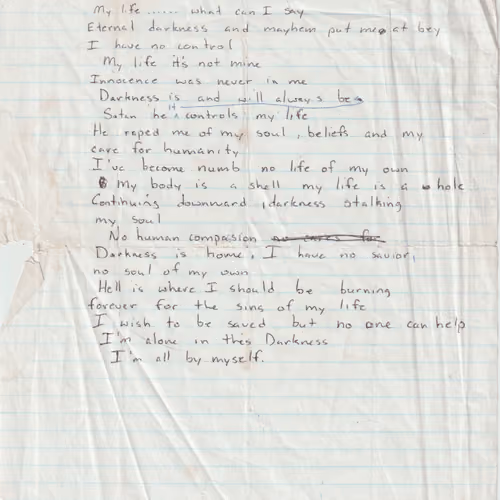 My life ...... what can I say
Eternal darkness and mayhem put me at bey
I have no control
My life it's not mine
Innocence was never in me
Darkness is and will always be
Satan he it controls my life
He raped me of my soul, beliefs and my
care for humanity
I've become numb no life of my own
My body is a shell my life is a hole
Continuing downward, darkness stalking
my soul
No human compasion no cares for
Darkness is home, I have no savior,
no soul of my own
Hell is where I should be burning
forever for the sins of my life
I wish to be saved but no one can help
I'm alone in this Darkness
I'm all by myself.